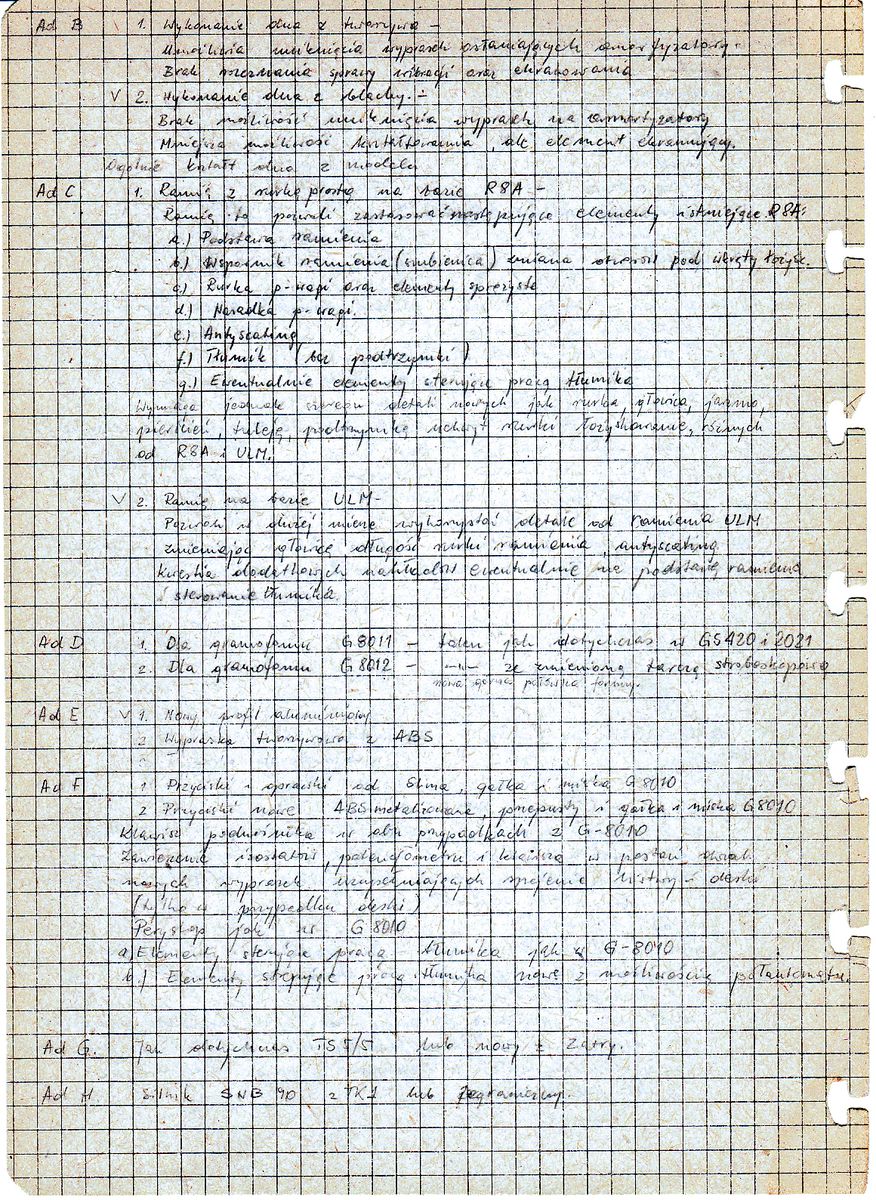 Ad B 1. Wykonanie dna z tworzywa –
Umożliwia uniknięcia wyprasek osłaniających amortyzatory.
Brak rozeznania sprawy wibracji oraz ekranowania
V 2. Wykonanie dna z blachy. –
Brak możliwość uniknięcia wyprasek na amortyzatory
Mniejsza możliwość kształtowania, ale element ekranujący.
Ogólnie kształt dna z modelu
Ad C 1. Ramię z rurką prostą na bazie R8A –
Ramię to pozwoli zastosować następujące elementy istniejące R8A:
a.) Podstawa ramienia
b.) Wspornik ramienia (szubienica) zmiana otworów pod wkręty łożysk.
c.) Rurka p-wagi oraz elementy sprężyste
d.) Nasadka p-wagi.
e.) Antyscating
f.) Tłumik (bez podtrzymki)
g.) Ewentualnie elementy sterujące pracą tłumika
Wymaga jednak szeregu detali nowych jak rurka, głowica, jarzmo,
pierścień, tuleja, podtrzymka uchwyt rurki łożyskowanie, różnych
od R8A i ULM.
V 2. Ramię na bazie ULM –
Pozwoli w dużej mierze wykorzystać detale od ramienia ULM
zmieniając głowicę długość rurki ramienia, antyscating
kwestia dodatkowych nakładów ewentualnie na podstawę ramienia
i sterowanie tłumika.
Ad D 1. Dla gramofonu G 8011 – talerz jak dotychczas w GS420 i 2021
2. Dla gramofonu G 8012 – –"– ze zmienioną tarczą stroboskopową
nowa górna połówka formy.
Ad E V 1. Nowy profil aluminiowy
2 Wypraska tworzywowa z ABS
Ad F 1 Przyciski i oprawki od Slima, gałka i miska G 8010
2 Przyciski nowe ABS metalizowane, przepusty i gałka i miska G 8010
Klawisz podnośnika w obu przypadkach z G-8010
Zawieszenie isostatów, potencjometru i klawisza w postaci dwóch
nowych wyprasek uzupełniających spojenie listwy i deski
(tylko w przypadku deski)
Peryskop jak w G 8010
a, Elementy sterujące pracą tłumika jak w G-8010
b.) Elementy sterujące pracą tłumika nowe z możliwością półautomatu.
Ad G. Jak dotychczas TS 5/5 lub nowy z Zatry.
Ad H Silnik SNB 90 z TK1 lub zagraniczny.